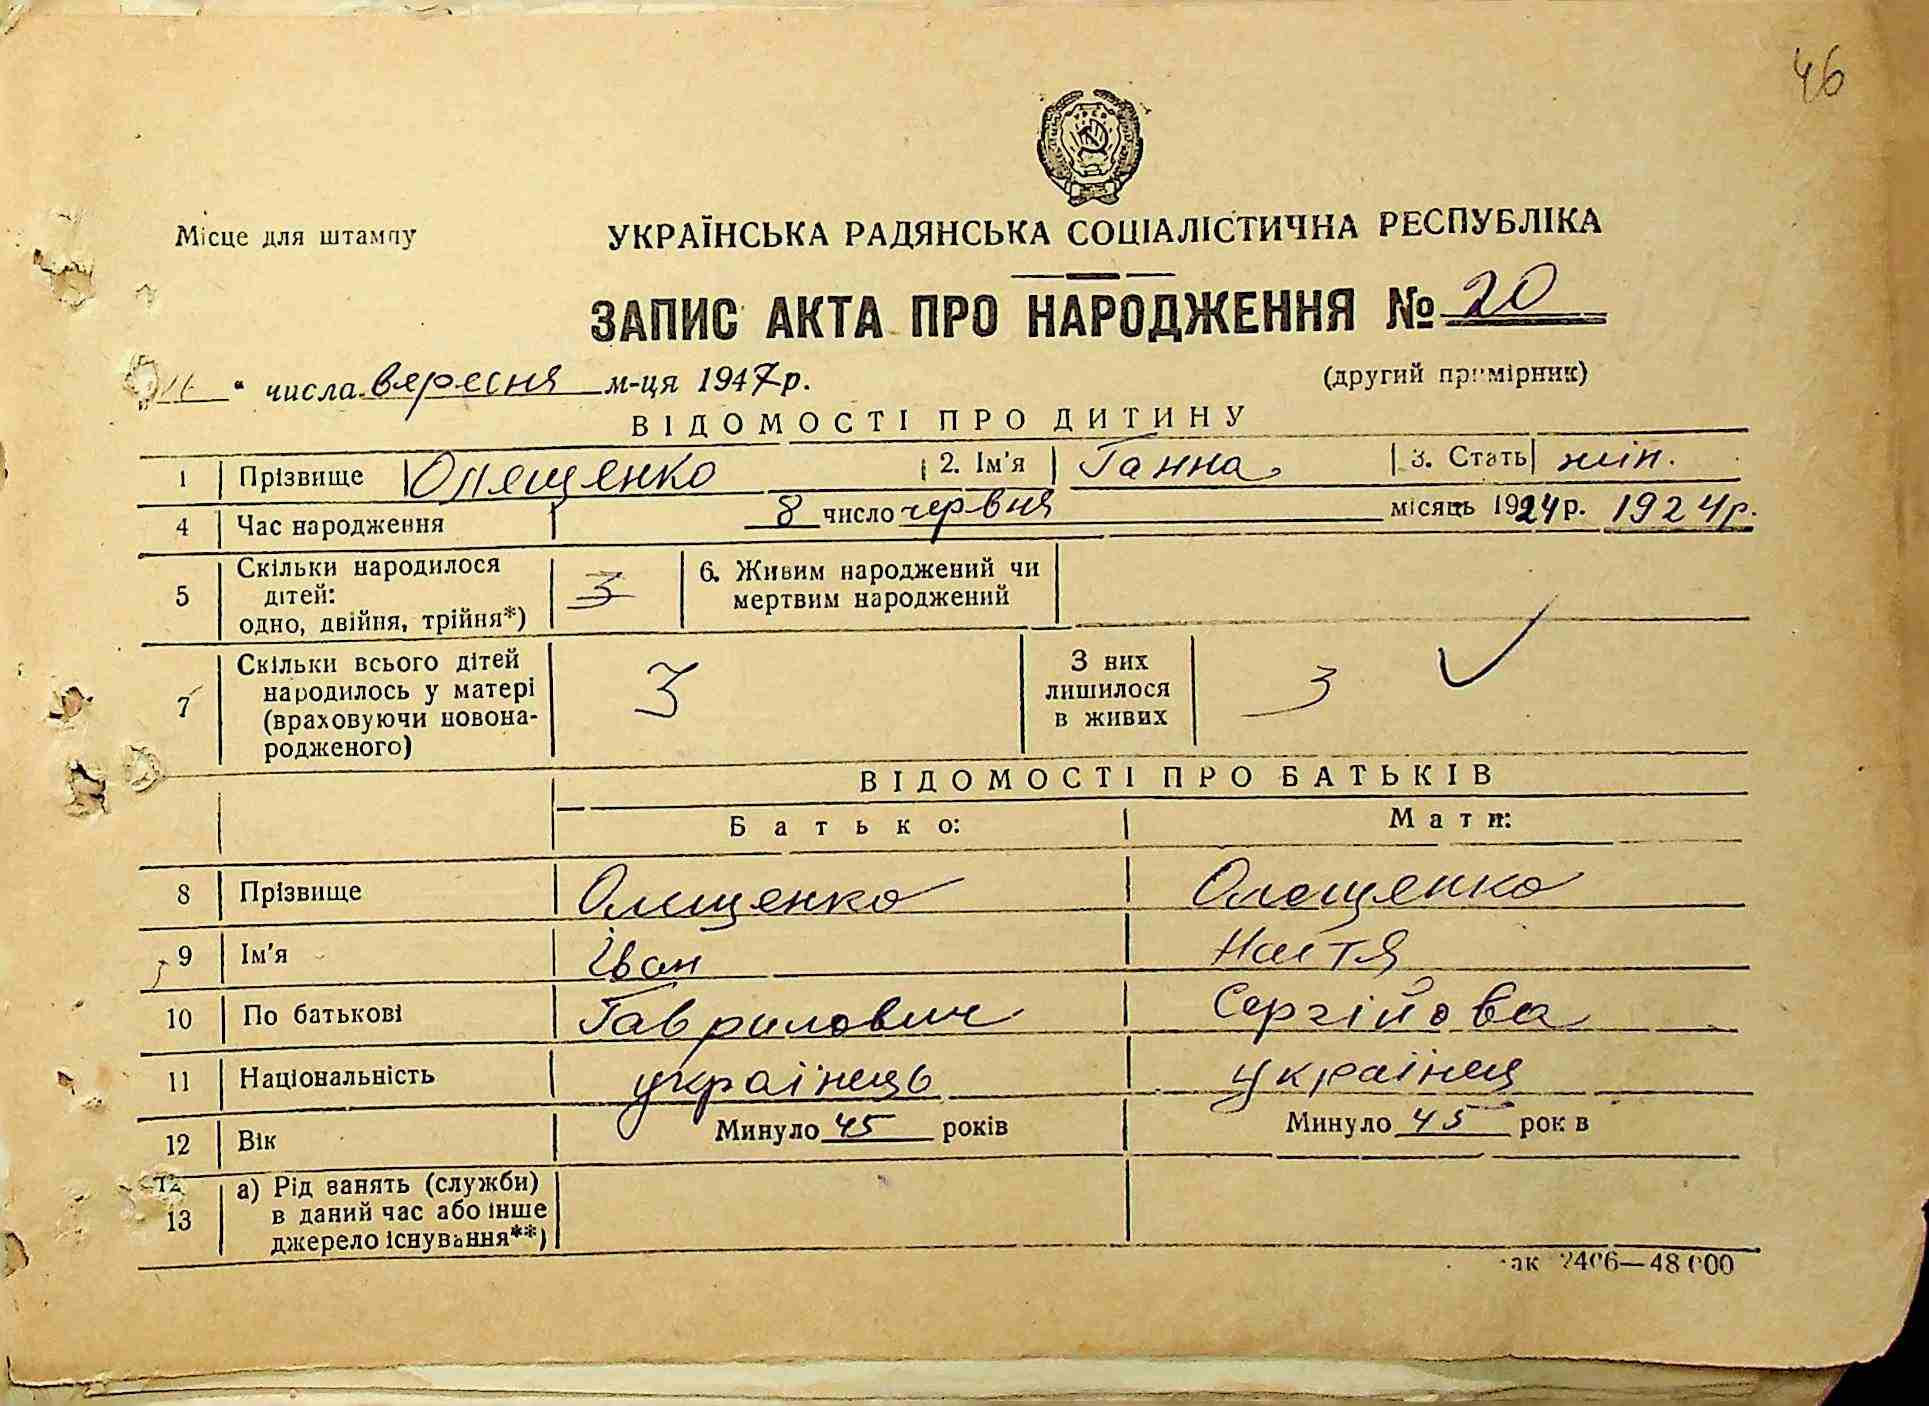 46
Місце для штампу
УКРАЇНСЬКА РАДЯНСЬКА СОЦІАЛІСТИЧНА РЕСПУБЛІКА
ЗАПИС АКТА ПРО НАРОДЖЕННЯ № 20
" числа вересня м-ця 1947 р.
(другий примірник)
ВІДОМОСТІ ПРО ДИТИНУ
1 Прізвище Олещенко 2. Ім'я Ганна 3. Стать жін.
4 Час народження 8 число червня місяць 1924 р. 1924 р.
5 Скільки народилося дітей: одно, двійня, трійня*) 3 6. Живим народжений чи мертвим народжений
7 Скільки всього дітей народилось у матері (враховуючи новонародженого) 3 З них лишилося в живих 3
ВІДОМОСТІ ПРО БАТЬКІВ
Батько: Мати:
8 Прізвище Олещенко Олещенко
9 Ім'я Іван Настя
10 По батькові Гаврилович Сергійовна
11 Національність українець українец
12 Вік Минуло 45 років Минуло 45 рок в
13 а) Рід занять (служби) в даний час або інше джерело існування**)
ак 2406—48 000